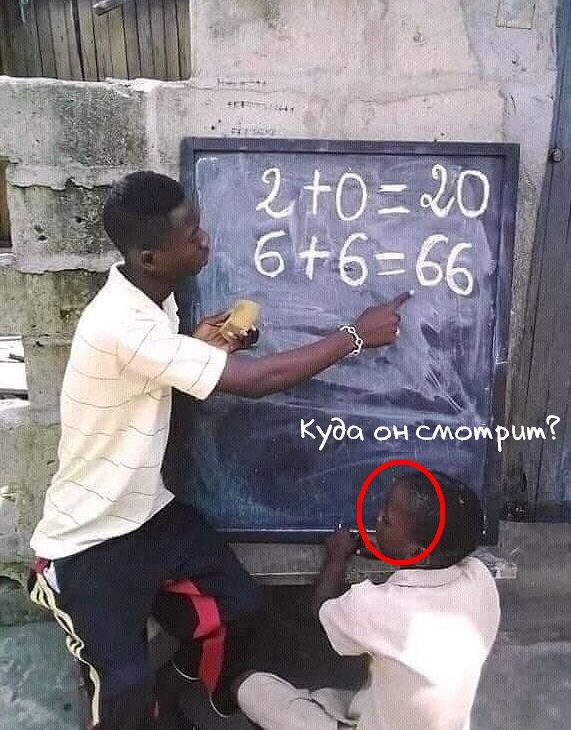 2+0=20
6+6=66
Куда он смотрит?